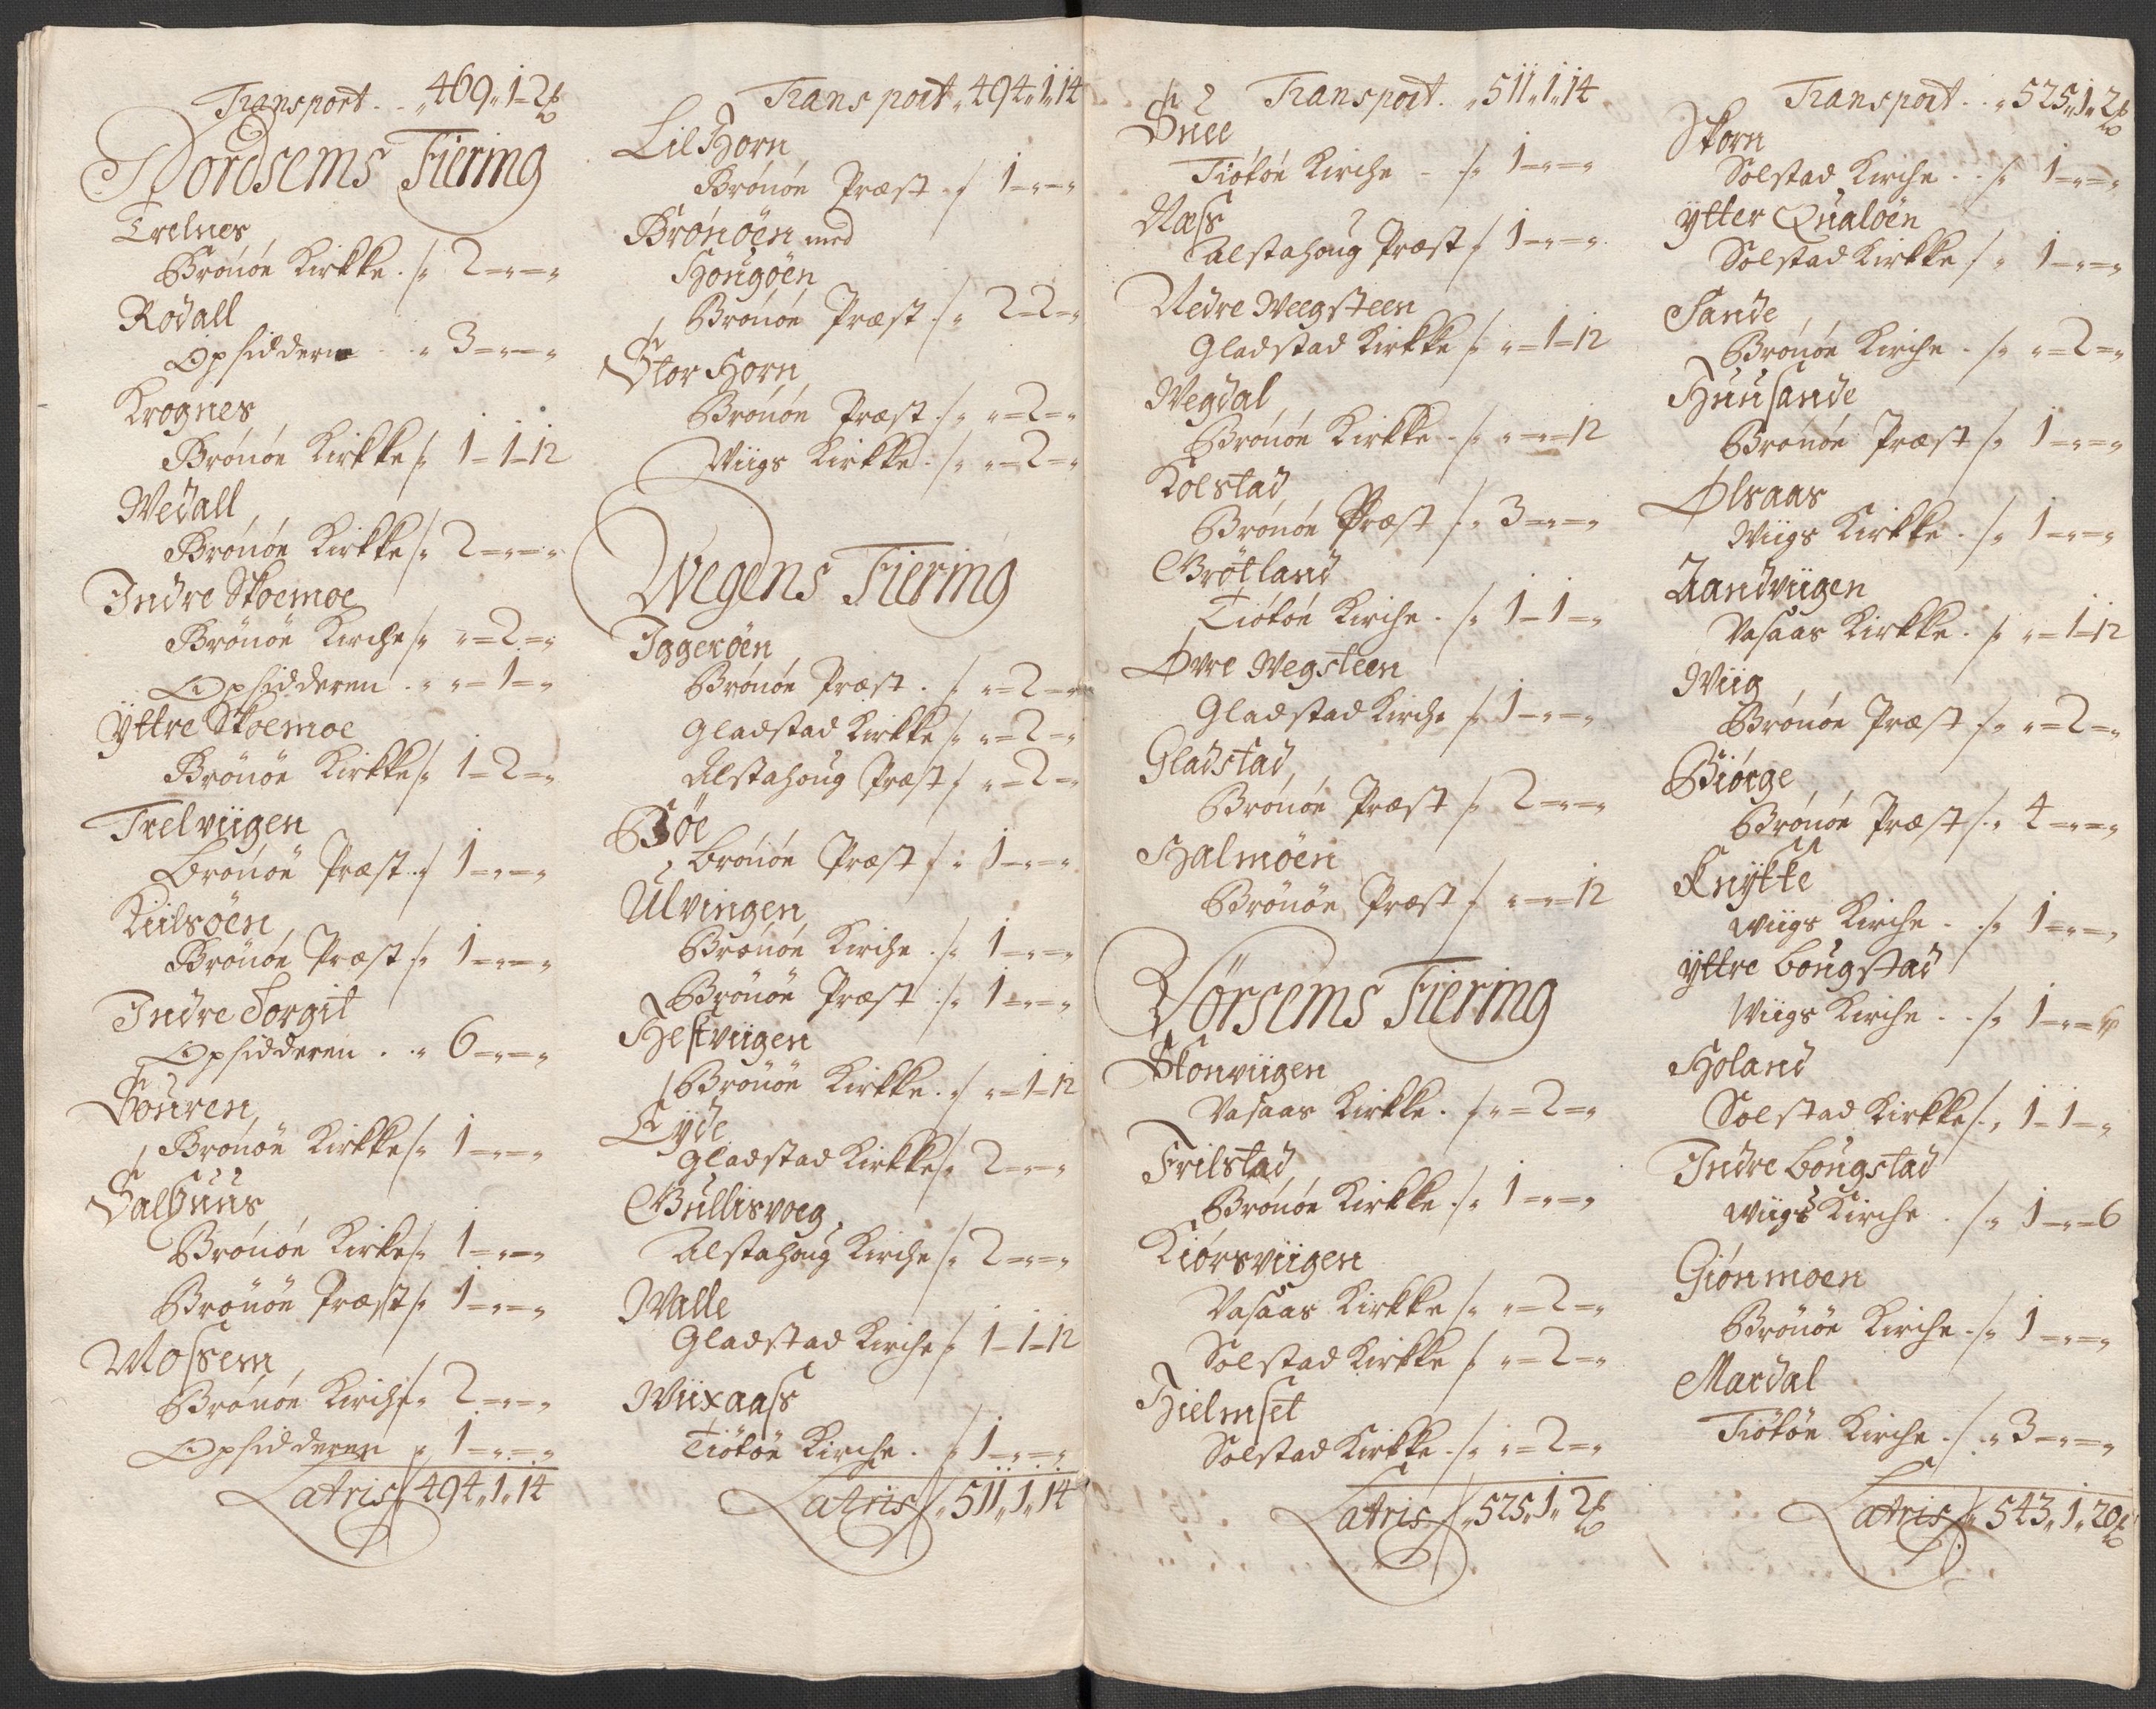 Transport . . „ 469 „ 1 = 2 ß
Tordsems Fiering
Trelnes
Brönöe Kirkke . /. 2 = „ = „
Rødall
Opsidderne . . „ 3 = „ = „
Krognes
Brönöe Kirkke /. 1 = 1 = 12
Wedall
Brönöe Kirkke /. 2 = „ = „
Indre Skoemoe
Brönöe Kirche /. „ = 2 = „
Opsidderen . „ „ = 1 = „
Ÿttre Skoemoe
Brönöe Kirkke /. 1 = 2 = „
Trelviigen
Brönöe Præst . /. 1 = „ = „
Kiilsöen
Brönöe Præst /. 1 = „ = „
Indre Torgit
Opsidderen . . „ 6 = „ = „
Souren
Brönöe Kirkke /. 1 = „ = „
Salhuus
Brönöe Kirke /. 1 = „ = „
Brönöe Præst /. 1 = „ = „
Mosem
Brönöe Kirche /. 2 = „ = „
Opsidderen „ 1 = „ = „
Latris /. 494 „ 1 „ 14
Transport „ 494 „ 1 „ 14
Lil Horn
Brönöe Præst . /. 1 = „ = „
Brönöen med
Hougöen
Brönöe Præst . /. 2 = 2 = „
Stor Horn
Brönöe Præst . /. „ = 2 = „
Wiigs Kirkke . /. „ = 2 = „
Wegens Fiering
Iggeröen
Brönöe Præst . /. „ = 2 = „
Gladstad Kirkke /. „ = 2 = „
Alstahoug Præst /. „ = 2 = „
Böe
Brönöe Præst /. 1 = „ = „
Ulvingen
Brönöe Kirche . /. 1 = „ = „
Brönöe Præst . /. 1 = „ = „
Hestviigen
Brönöe Kirkke . /. „ = 1 = 12
Eyde
Gladstad Kirkke /. 2 = „ = „
Gullisvoeg
Alstahoug Kirche /. 2 = „ = „
Walle
Gladstad Kirche /. 1 = 1 = 12
Wiixaass
Tiötöe Kirche . /. 1 = „ = „
Latris /. 511 „ 1 „ 14
Transport . „ 511 „ 1 „ 14
Suee
Tiötöe Kirche - /. 1 = „ = „
Næss
Alstahoug Præst /. 1 = „ = „
Nedre Weegsteen
Gladstad Kirkke /. „ = 1 = 12
Wegdal
Brönöe Kirkke . /. „ = „ = 12
Kolstad
Brönöe Præst /. 3 = „ = „
Grøtland
Tiötöe Kirche . /. 1 = 1 = „
Øvre Wegsteen
Gladstad Kirche /. 1 = „ = „
Gladstad
Brönöe Præst /. 2 = „ = „
Halmöen
Brönöe Præst /. „ = „ = 12
Børsems Fiering
Skonviigen
Vasaas Kirkke . /. „ = 2 = „
Frilstad
Brönöe Kirkke . /. 1 = „ = „
Kiörsviigen
Vasaas Kirkke /. „ = 2 = „
Solstad Kirkke /. „ = 2 = „
Hielmset
Solstad Kirkke . /. „ = 2 = „
Latris /. „ 525 „ 1 „ 2 ß
Transport . . „ 525 „ 1 „ 2 ß
Skorn
Solstad Kirche . . /. 1 = „ = „
ytter Qualöen
Solstad Kirkke /. 1 = „ = „
Sande
Brönöe Kirche . /. „ = 2 = „
Huusande
Brönöe Præst /. 1 = „ = „
Olsaas
Wiigs Kirkke . /. 1 = „ = „
Aandviigen
Vasaas Kirkke . /. „ = 1 = 12
Wiig
Brönöe Præst /. „ = 2 = „
Biörge
Brönöe Præst /. 4 = „ = „
Knÿtte
Wiigs Kirche . /. 1 = „ = „
ÿttre Bougstad
Wiigs Kirche . . /. 1 = „ =
Holand
Solstad Kirkke /. 1 = 1 = „
Indre Bougstad
Wiigs Kirche . /. 1 = „ = 6
Giönmoen
Brönöe Kirche . /. 1 = „ = „
Mardal
Tiötöe Kirche . /. 3 = „ = „
Latris /. 543 „ 1 „ 20 ß